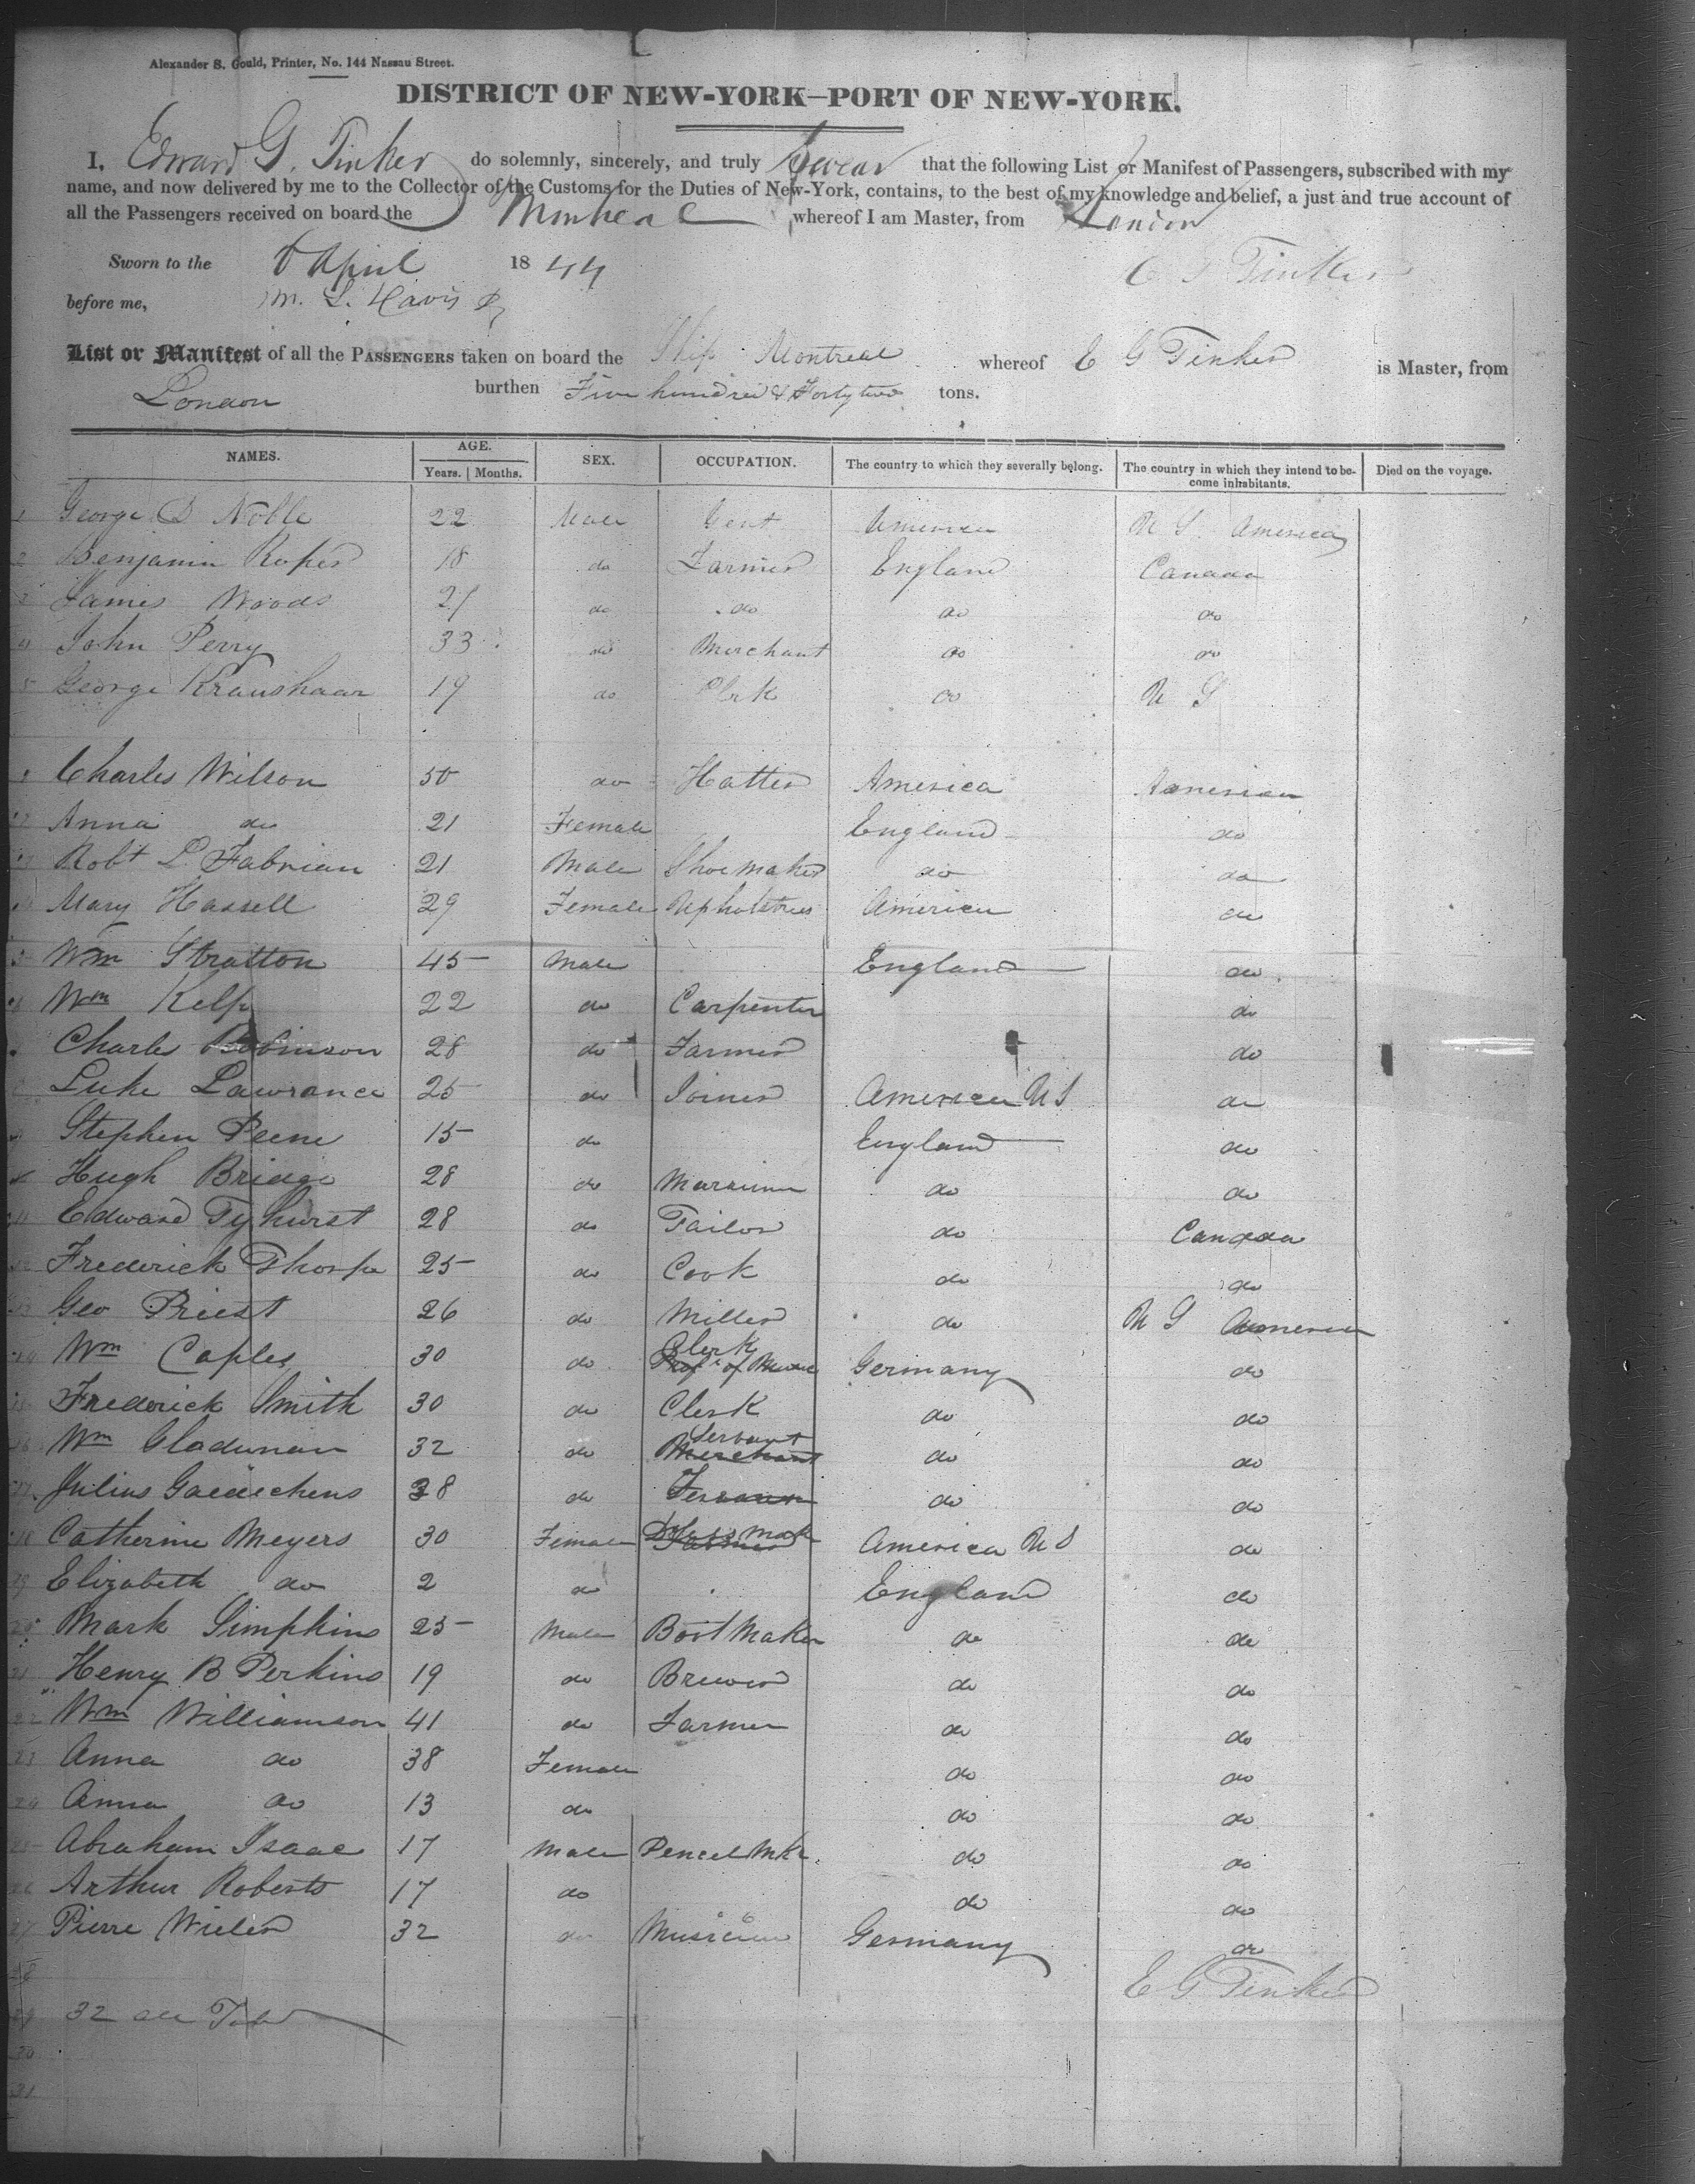 Alexander S. Gould, Printer, No. 144 Nassau Street.
DISTRICT OF NEW-YORK—PORT OF NEW-YORK.
I, Edward G. Tinker do solemnly, sincerely, and truly Swear that the following List or Manifest of Passengers, subscribed with my
name, and now delivered by me to the Collector of the Customs for the Duties of New-York, contains, to the best of my knowledge and belief, a just and true account of
all the Passengers received on board the Montreal whereof I am Master, from London
Sworn to the April 1844 E G Tinker
before me, M. L. Davis
List or Manifest of all the PASSENGERS taken on board the Ship Montreal whereof E G Tinker is Master, from
London burthen Five hundred & Forty two tons.
NAMES. AGE. Years. Months. SEX. OCCUPATION. The country to which they severally belong. The country in which they intend to become inhabitants. Died on the voyage.
1 George S Noble 22 Male Gent America U S America
2 Benjamin Roper 18 do Farmer England Canada
3 James Woods 21 do do do do
4 John Perry 33 do Merchant do do
5 George Kraushaar 19 do Clerk do U S
Charles Wilson 50 do Hatter America American
Anna do 21 Female England do
Robt L Fabrian 21 Male Shoe maker do do
Mary Hassell 29 Female Upholstress America do
Wm Stratton 45 Male England do
Wm Kelp 22 do Carpenter do
Charles Robinson 28 do Farmer do
Luke Lawrance 25 do Joiner America U S do
Stephen Peene 15 do England do
Hugh Bridge 28 do do do
11 Edward Tyhurst 28 do Tailor do Canada
12 Frederick Thorpe 25 do Cook do do
13 Geo Priest 26 do Miller do U S America
14 Wm Caples 30 do Clerk Prof of Music Germany do
15 Frederick Smith 30 do Clerk do do
16 Wm Gladwman 32 do Servant Merchant do do
17 Julius 38 do do do
18 Catherine Meyers 30 Female Dress Mak Farmer America U S do
19 Elizabeth do 2 do England do
20 Mark Simpkins 25 Male Boot Maker do do
21 Henry B Perkins 19 do Brewer do do
22 Wm Williamson 41 do Farmer do do
23 Anna do 38 Female do do
24 Anna do 13 do do do
25 Abraham Isaac 17 Male Pencel Mkr do do
26 Arthur Roberts 17 do do do
27 Pierre Wieler 32 do Musician Germany do
28 E G Tinker
29 32 all Told
30
31